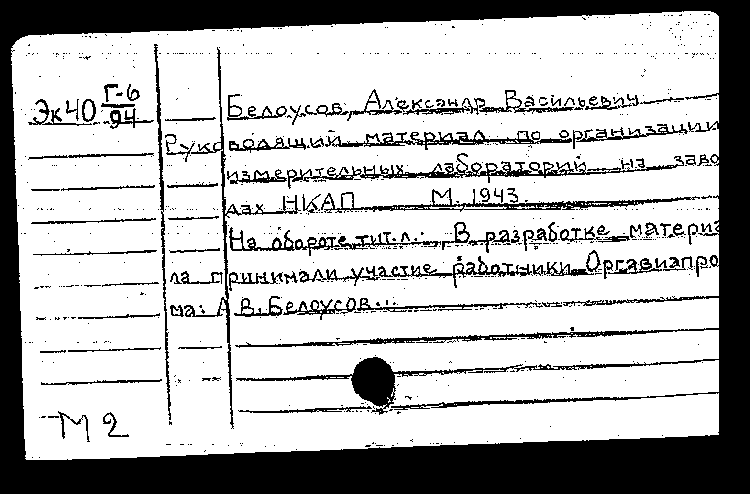 Эк40 Г-6/94
Белоусов, Александр Васильевич
Руководящий материал по организации
измерительных лабораторий на заво
дах НКАП М., 1943.
На обороте тит.л.: „В разработке материа
ла принимали участие работники Оргавиапро
ма: А.В. Белоусов...
М2